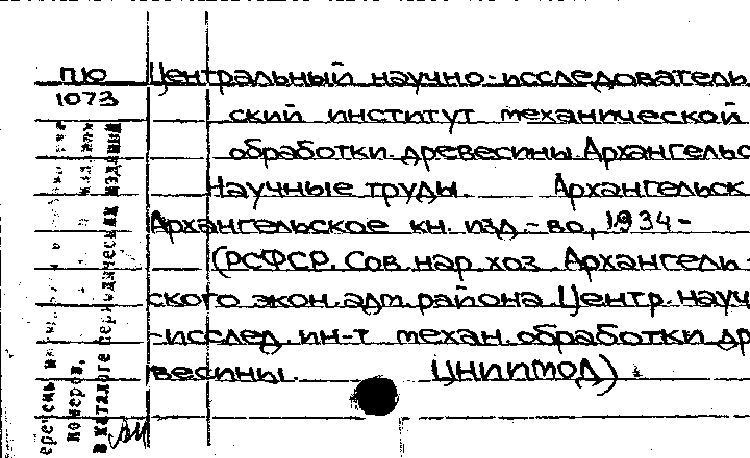 ПЮ Центральный научно-исследователь
1073
ский институт механической
обработки древесины. Архангельс
Научные труды. Архангельск
Архангельское кн. изд.-во, 1934-
(РСФСР. Сов. нар. хоз. Архангель-
ского экон. адм. района. Центр. науч
-исслед. ин-т механ. обработки др
весины. ЦНИИМОД).
номеров,
в каталоге периодических изданий